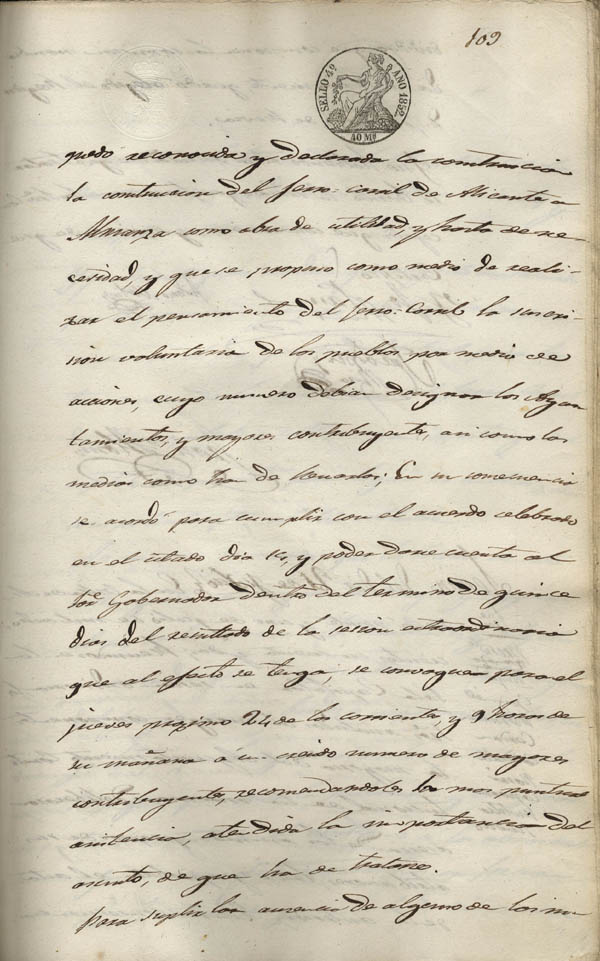 109
SELLO 4º AÑO 1852
40 Ms
quedo reconocida y declarada la construcion
la construcion del ferro-carril de Alicante a
Almanza como obra de utilidad, y hasta de ne-
cesidad, y que se propuso como medio de reali-
zar el pensamiento del ferro-Carril la suscri-
sion voluntaria de los pueblos por medio de
acciones, cuyo numero debian designar los Ayun
tamientos, y mayores contribuyentes, asi como los
medios como han de llevarlos; En su consecuencia
se acordó para cumplir con el acuerdo celebrado
en el citado dia y poder darse cuenta al
Sor. Gobernador dentro del termino de quince
dias del resultado de la sesion extraordinaria
que al efecto se tenga, se convoquen para el
jueves proximo 24 de los corrientes, y 9 horas de
su mañana á un crecido numero de mayores
contribuyentes, recomendandoles la mas puntual
asistencia, atendida la importancia del
asunto, de que ha de tratarse.
Para suplir las ausencias de alguno de los in-